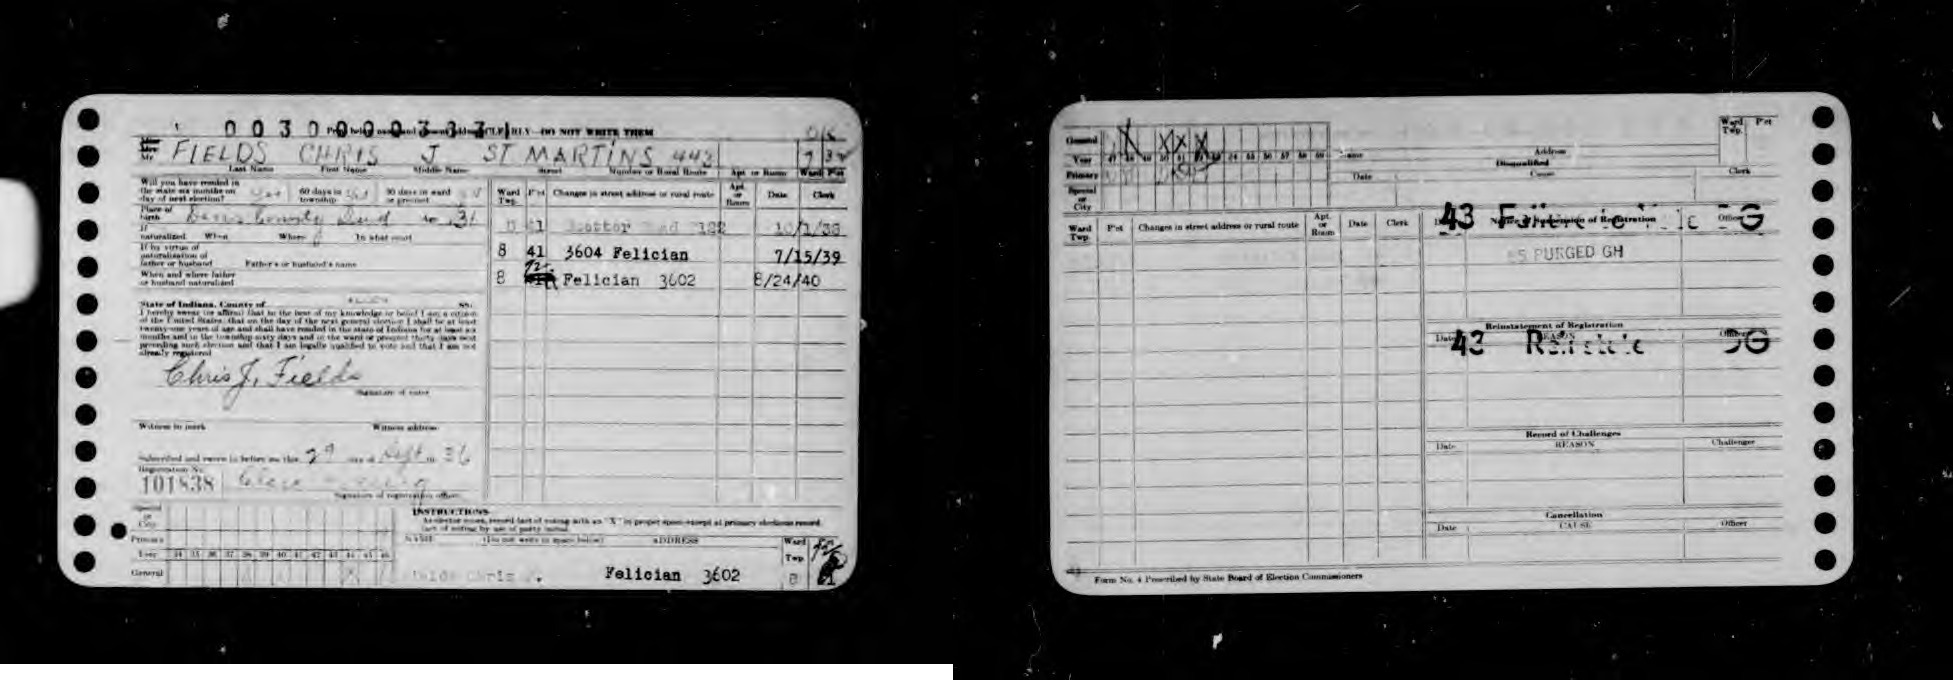 0030000333
CLEARLY—DO NOT WRITE THEM
Mr. FIELDS CHRIS J ST MARTINS 443
Last Name First Name Middle Name Street Number or Rural Route Apt. or Room Ward Pct
Will you have resided in
the state six months on
day of next election? yes 60 days in township yes 30 days in ward or precinct
Place of birth
If naturalized When Where In what court
If by virtue of
naturalization of
father or husband Father's or husband's name
When and where father
or husband naturalized
Ward Twp. P'ct Changes in street address or rural route Apt. or Room Date Clerk
41 10/1/38
8 41 3604 Felician 7/15/39
8 Felician 3602 8/24/40
State of Indiana, County of ss:
I hereby swear (or affirm) that to the best of my knowledge or belief I am a citizen
of the United States; that on the day of the next general election I shall be at least
twenty-one years of age and shall have resided in the state of Indiana for at least six
months and in the township sixty days and in the ward or precinct thirty days next
preceding such election and that I am legally qualified to vote and that I am not
already registered
Chris J. Fields
Signature of voter
Witness to mark Witness address
Subscribed and sworn to before me this 29 day of Sept 36
Registration No.
101838
Signature of registration officer
Special or City
Primary
Year 34 35 36 37 38 39 40 41 42 43 44 45 46
General
INSTRUCTIONS
At elector votes, record fact of voting with an "X" in proper space except at primary elections record
fact of voting by use of party initial.
NAME (Do not write in space below) ADDRESS Ward Twp. Pct
Fields Chris J. Felician 3602 8
General
Year 47 48 49 50 51 52 53 54 55 56 57 58 59
Primary
Special or City
Name Address Ward Twp. P'ct
Disqualified
Date Cause Clerk
Ward Twp. P'ct Changes in street address or rural route Apt. or Room Date Clerk
Notice of Suspension of Registration Officer
43 Failure to Vote
55 PURGED GH
Reinstatement of Registration
Date REASON Officer
43
Record of Challenges
Date REASON Challenger
Cancellation
Date CAUSE Officer
Form No. 4 Prescribed by State Board of Election Commissioners